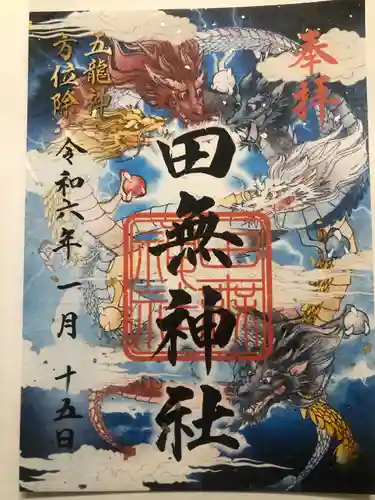 奉拝
田無神社
五龍神
方位除
令和六年一月十五日